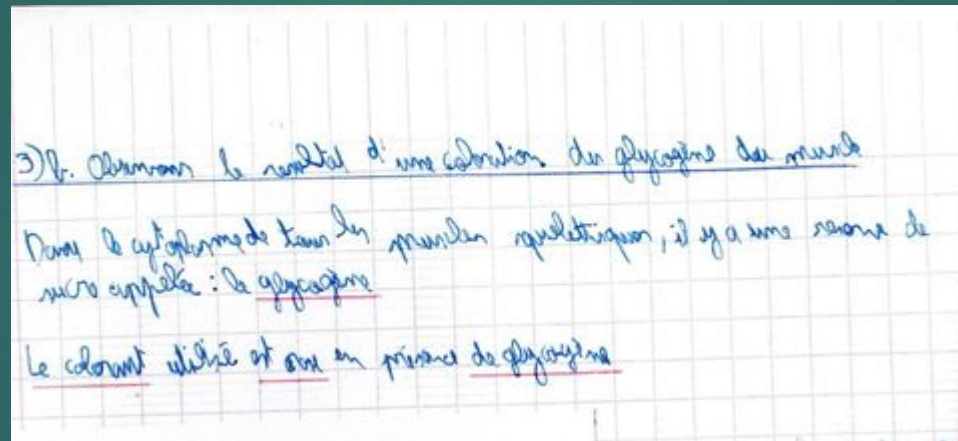 3)b. Observons le résultat d'une coloration du glycogène du muscle
Dans le cytoplasme de tous les muscles squelettiques, il y a une réserve de
sucre appelée : le glycogène
Le colorant utilisé est rose en présence de glycogène